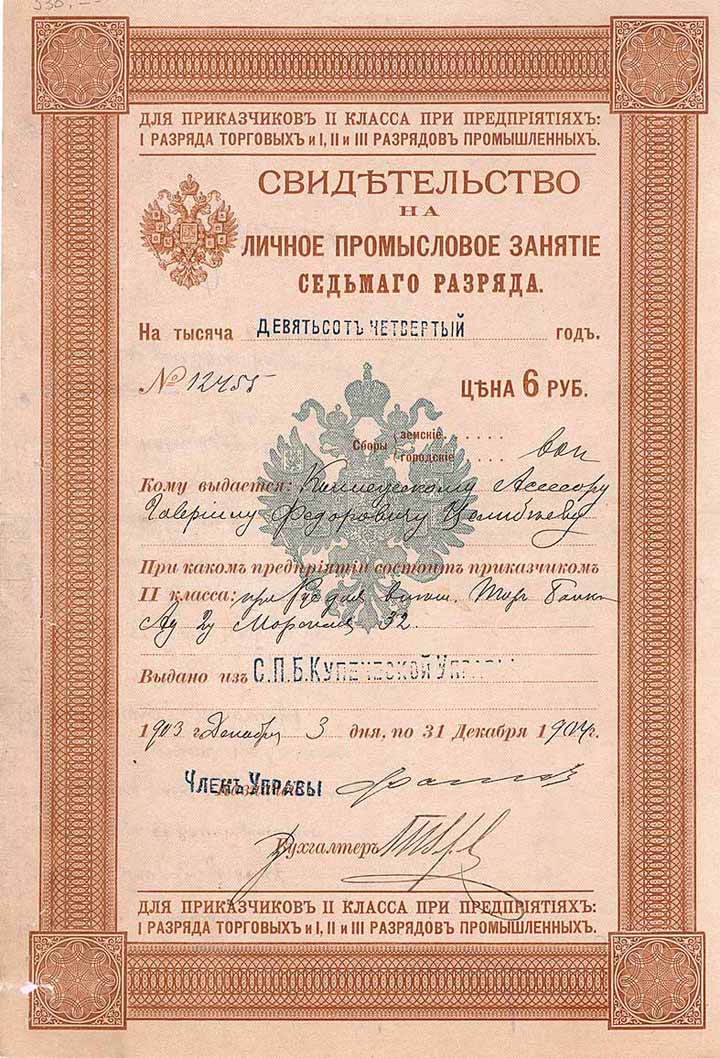 ДЛЯ ПРИКАЗЧИКОВЪ II КЛАССА ПРИ ПРЕДПРІЯТІЯХЪ:
I РАЗРЯДА ТОРГОВЫХЪ и I, II и III РАЗРЯДОВЪ ПРОМЫШЛЕННЫХЪ.
СВИДѢТЕЛЬСТВО
НА
ЛИЧНОЕ ПРОМЫСЛОВОЕ ЗАНЯТІЕ
СЕДЬМАГО РАЗРЯДА.
На тысяча ДЕВЯТЬСОТЪ ЧЕТВЕРТЫЙ годъ.
№ 12455 ЦѢНА 6 РУБ.
Сборы земскіе
городскіе
Кому выдается: Коллежскому Асессору
Гавріилу Федоровичу
При какомъ предпріятіи состоитъ приказчикомъ
II класса: при Рус для внѣш. Торг Банкѣ
Морская 32.
Выдано изъ С.П.Б. КУПЕЧЕСКОЙ УПРАВЫ
1903 г. Декабря 3 дня, по 31 Декабря 1904 г.
ЧЛЕНЪ УПРАВЫ
Бухгалтеръ
ДЛЯ ПРИКАЗЧИКОВЪ II КЛАССА ПРИ ПРЕДПРІЯТІЯХЪ:
I РАЗРЯДА ТОРГОВЫХЪ и I, II и III РАЗРЯДОВЪ ПРОМЫШЛЕННЫХЪ.